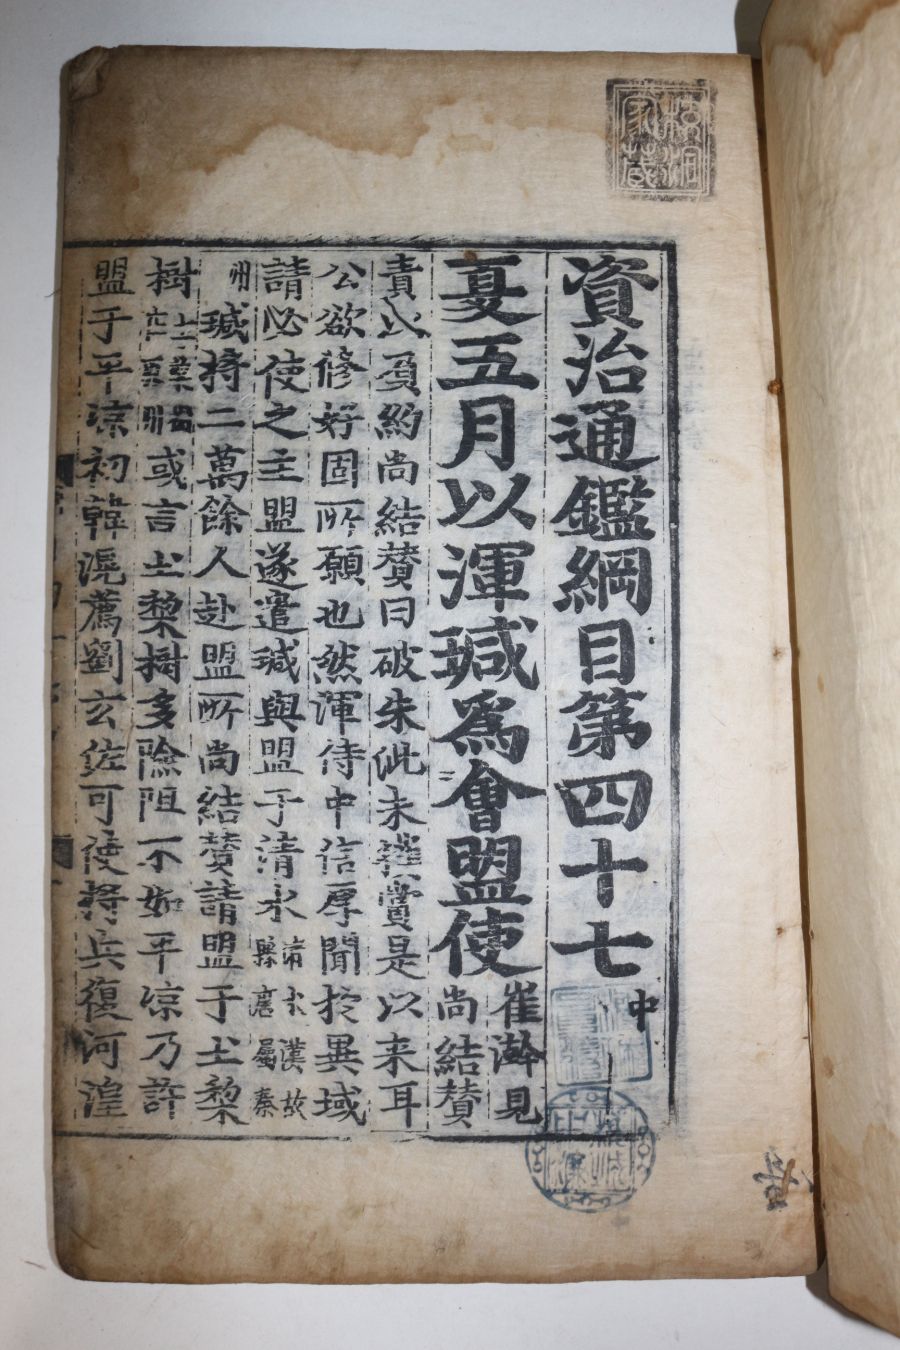 家藏
資治通鑑綱目第四十七中
夏五月以渾瑊爲會盟使崔澣見
尚結贊
責以負約尚結贊曰破朱泚未獲賞是以来耳
公欲修好固所願也然渾侍中信厚聞於異域
請必使之主盟遂遣瑊與盟于清水清水漢故
縣唐屬秦
州瑊將二萬餘人赴盟所尚結贊請盟于土黎
樹或言土黎樹多險阻不如平凉乃許
盟于平凉初韓滉薦劉玄佐可使將兵復河湟